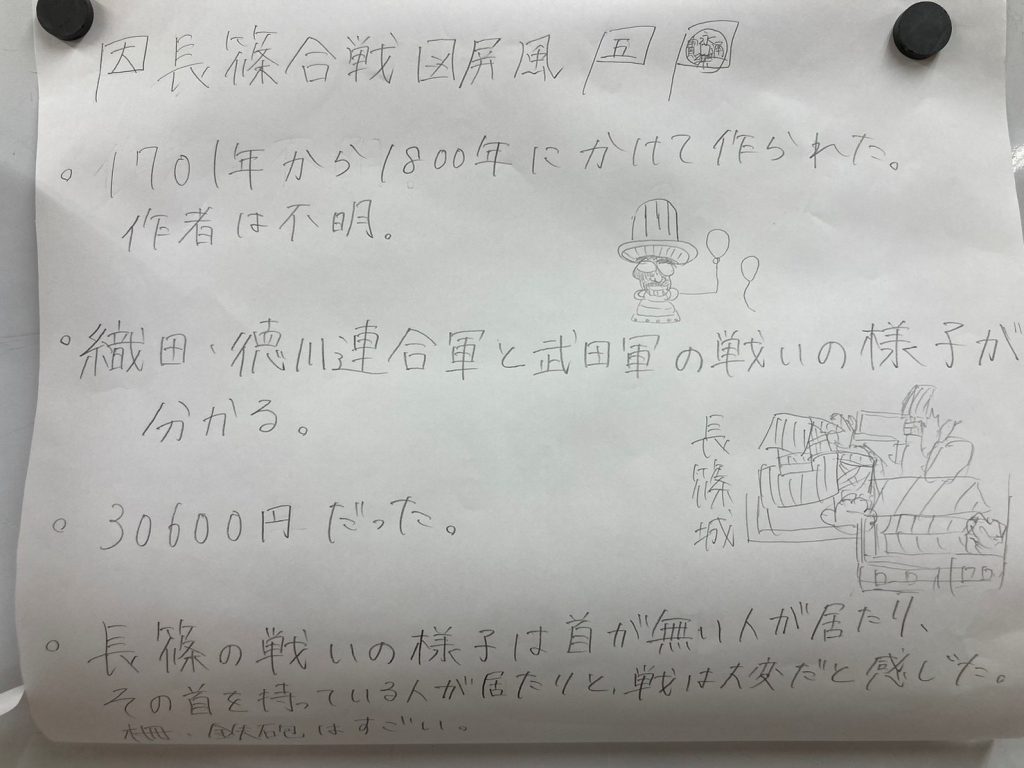 因 長篠合戦図屏風 五
。1701年から1800年にかけて作られた。
作者は不明。
。織田・徳川連合軍と武田軍の戦いの様子が
分かる。
長篠城
。30600円だった。
。長篠の戦いの様子は首が無い人が居たり、
その首を持っている人が居たりと、戦は大変だと感じた。
柵・鉄砲はすごい。